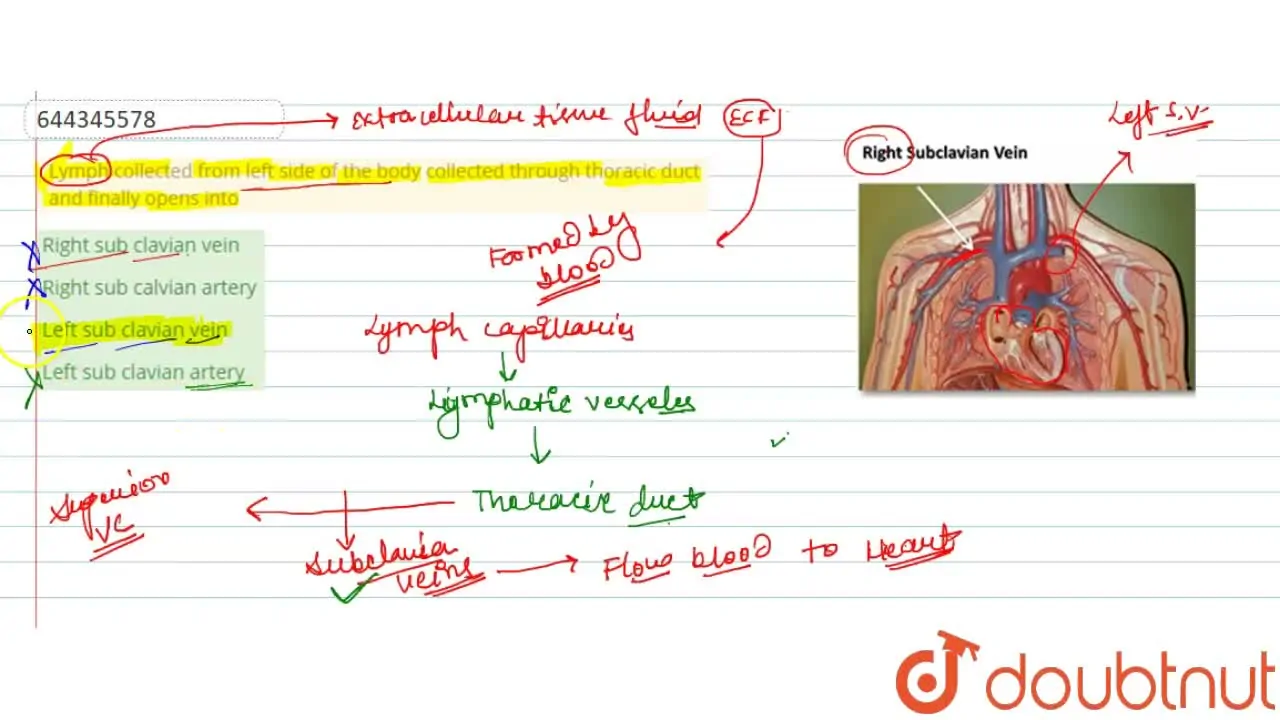 644345578
Extracellular tissue fluid ECF
Left S.V.
Right Subclavian Vein
Lymph collected from left side of the body collected through thoracic duct
and finally opens into
Right sub clavian vein
Right sub calvian artery
Left sub clavian vein
Left sub clavian artery
Formed by
blood
Lymph capillaries
Lymphatic vesseles
Thoracic duct
Superior
VC
Subclavian
veins
Flow blood to Heart
doubtnut